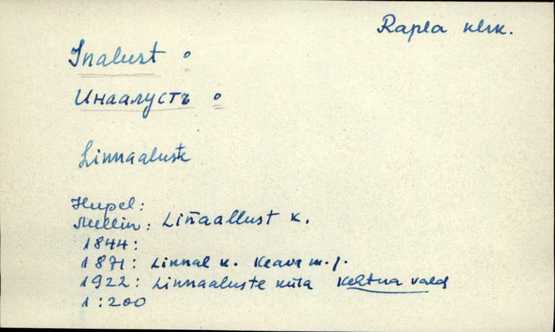 Rapla khk.
Inalust
Инаалустъ
Linnaaluste
Hupel:
Mellin: Liñaallust k.
1844:
1871: Linnal k. Keava m. j.
1922: Linnaaluste küla Kehtna vald
1:200